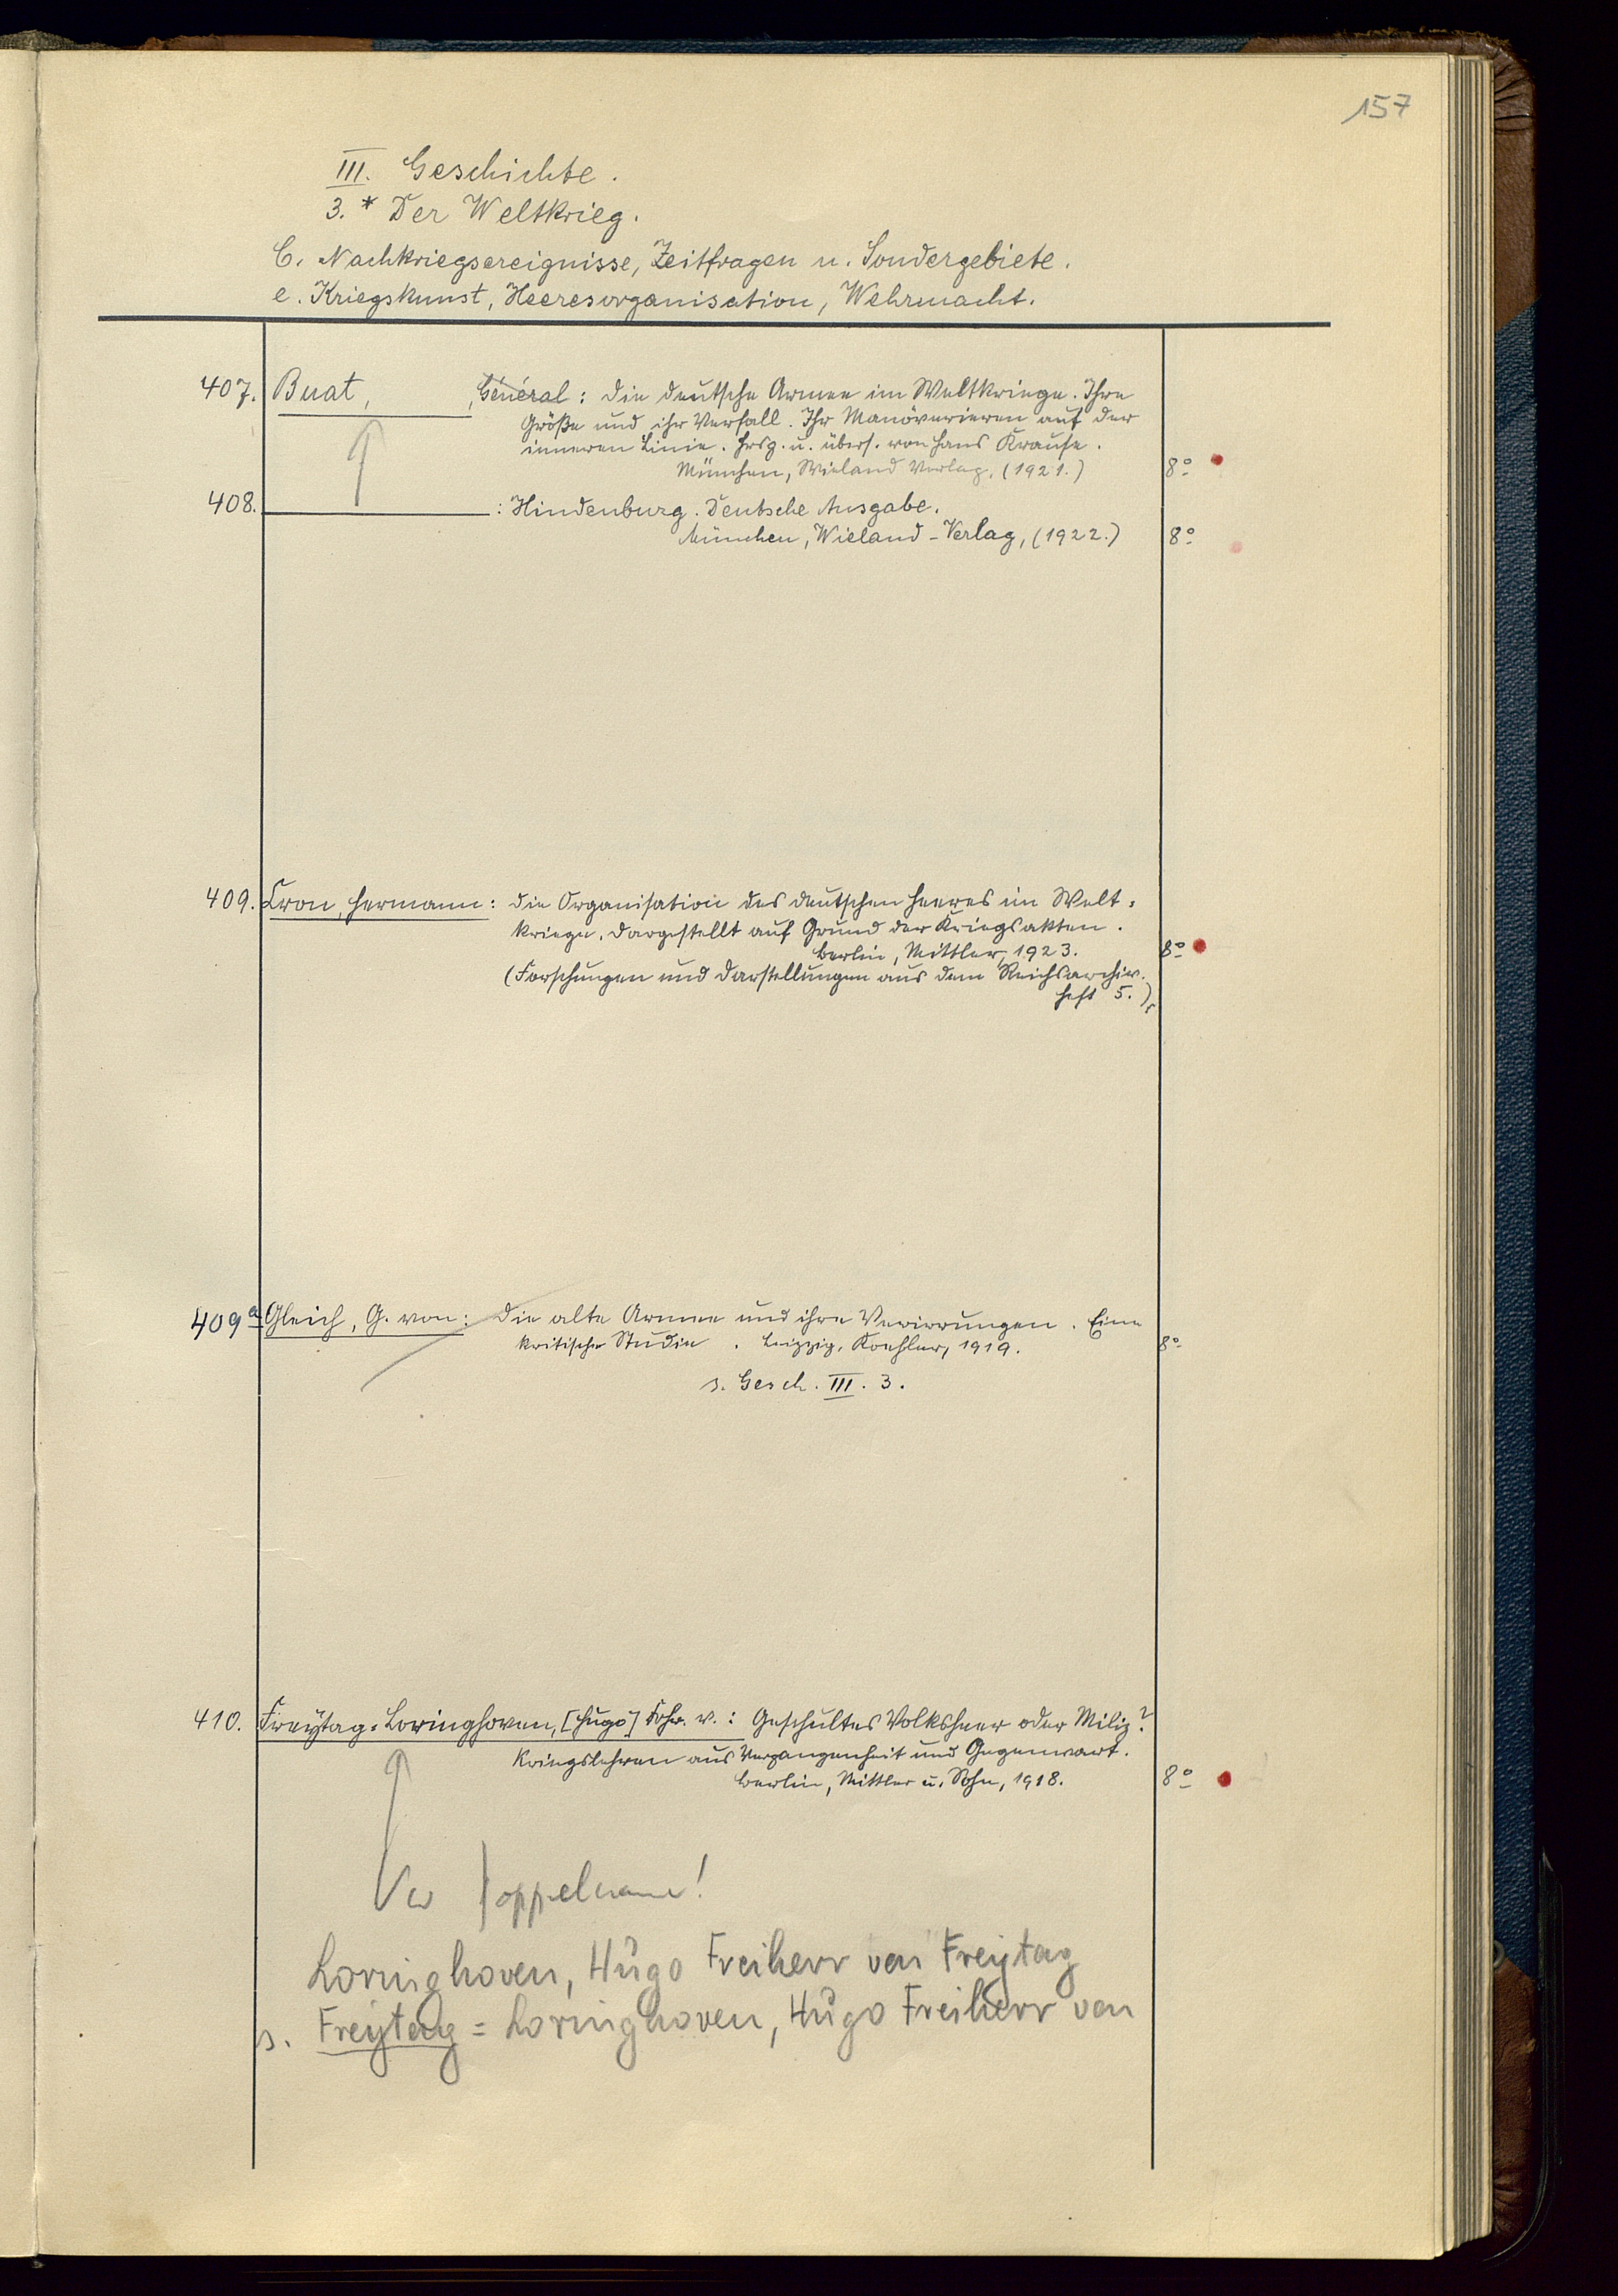 157
III. Geschichte.
3.* Der Weltkrieg.
C. Nachkriegsereignisse, Zeitfragen u. Sondergebiete.
e. Kriegskunst, Heeresorganisation, Wehrmacht.
407. Buat, , Général: Die deutsche Armee im Weltkriege. Ihre
Größe und ihr Verfall. Ihr Manöverieren auf der
inneren Linie. Hrsg. u. übers. von Hans Krause.
München, Wieland Verlag, (1921.) 8°
408. : Hindenburg. Deutsche Ausgabe.
München, Wieland-Verlag, (1922.) 8°
409. Cron, Hermann: Die Organisation des deutschen Heeres im Welt=
kriege, dargestellt auf Grund der Kriegsakten.
Berlin, Mittler, 1923. 8°
(Forschungen und Darstellungen aus dem Reichsarchiv.
Heft 5.)
409a Gleich, G. von: Die alte Armee und ihre Verirrungen. Eine
kritische Studie. Leipzig, Koehler, 1919. 8°
s. Gesch. III. 3.
410. Freytag=Loringhoven, [Hugo] Frhr. v.: Geschultes Volksheer oder Miliz?
Kriegslehren aus Vergangenheit und Gegenwart.
Berlin, Mittler u. Sohn, 1918. 8°
Doppelname!
Loringhoven, Hugo Freiherr von Freytag
s. Freytag=Loringhoven, Hugo Freiherr von